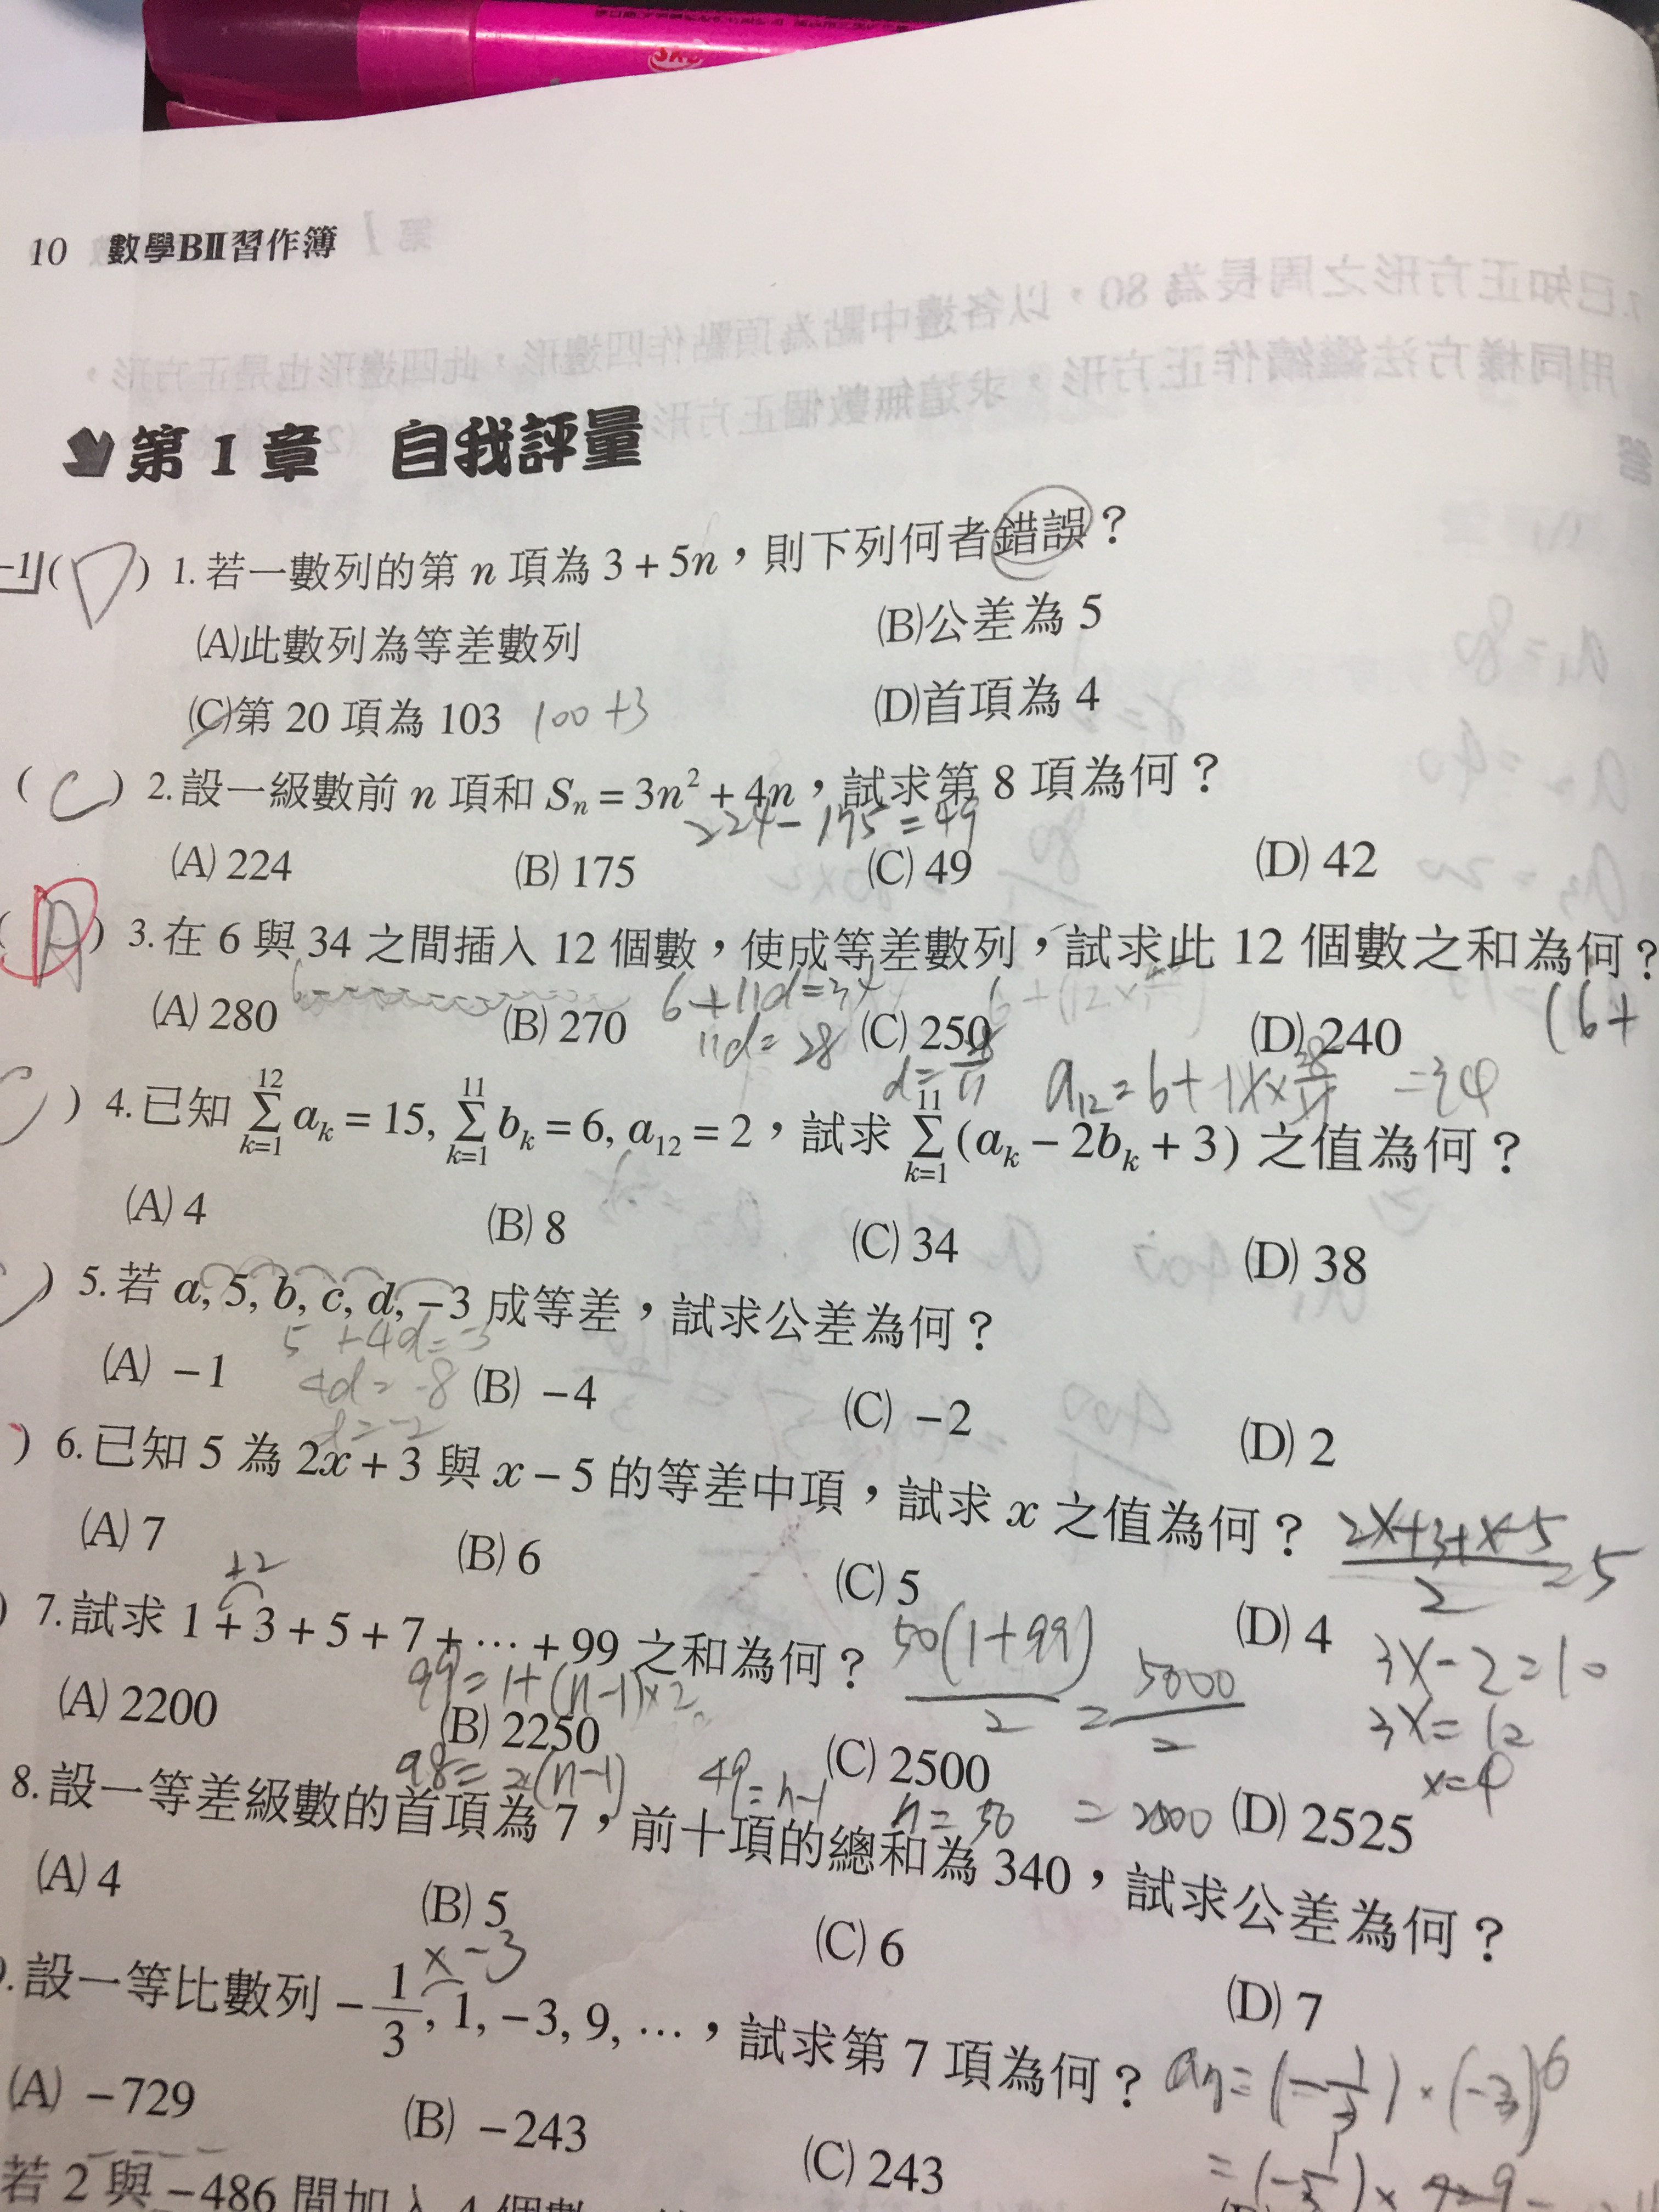 10 數學BⅡ習作簿
第1章 自我評量
(D) 1. 若一數列的第 n 項為 3 + 5n,則下列何者錯誤?
(A)此數列為等差數列 (B)公差為 5
(C)第 20 項為 103 100+3 (D)首項為 4
(C) 2. 設一級數前 n 項和 Sₙ = 3n² + 4n,試求第 8 項為何?
224-175=49
(A) 224 (B) 175 (C) 49 (D) 42
(D) 3. 在 6 與 34 之間插入 12 個數,使成等差數列,試求此 12 個數之和為何?
6+11d=34
(A) 280 (B) 270 (C) 250 (D) 240 (6+
11d=28
a₁₂=6+11×28/11 =34
) 4. 已知 Σ_{k=1}^{12} aₖ = 15, Σ_{k=1}^{11} bₖ = 6, a₁₂ = 2,試求 Σ_{k=1}^{11} (aₖ − 2bₖ + 3) 之值為何?
(A) 4 (B) 8 (C) 34 (D) 38
) 5. 若 a, 5, b, c, d, −3 成等差,試求公差為何?
5+4d=-3
(A) −1 (B) −4 (C) −2 (D) 2
4d=-8
d=-2
) 6. 已知 5 為 2x + 3 與 x − 5 的等差中項,試求 x 之值為何?
(2x+3+x-5)/2=5
(A) 7 (B) 6 (C) 5 (D) 4
3x-2=10
3x=12
x=4
+2
) 7. 試求 1 + 3 + 5 + 7 + ⋯ + 99 之和為何?
50(1+99)/2=5000/2
=2500
99=1+(n-1)×2
(A) 2200 (B) 2250 (C) 2500 (D) 2525
98=2(n-1) 49=n-1 n=50
8. 設一等差級數的首項為 7,前十項的總和為 340,試求公差為何?
(A) 4 (B) 5 (C) 6 (D) 7
×-3
. 設一等比數列 −1/3, 1, −3, 9, ⋯,試求第 7 項為何?
a₇=(-1/3)×(-3)⁶
(A) −729 (B) −243 (C) 243
若 2 與 −486 間加入 4 個數